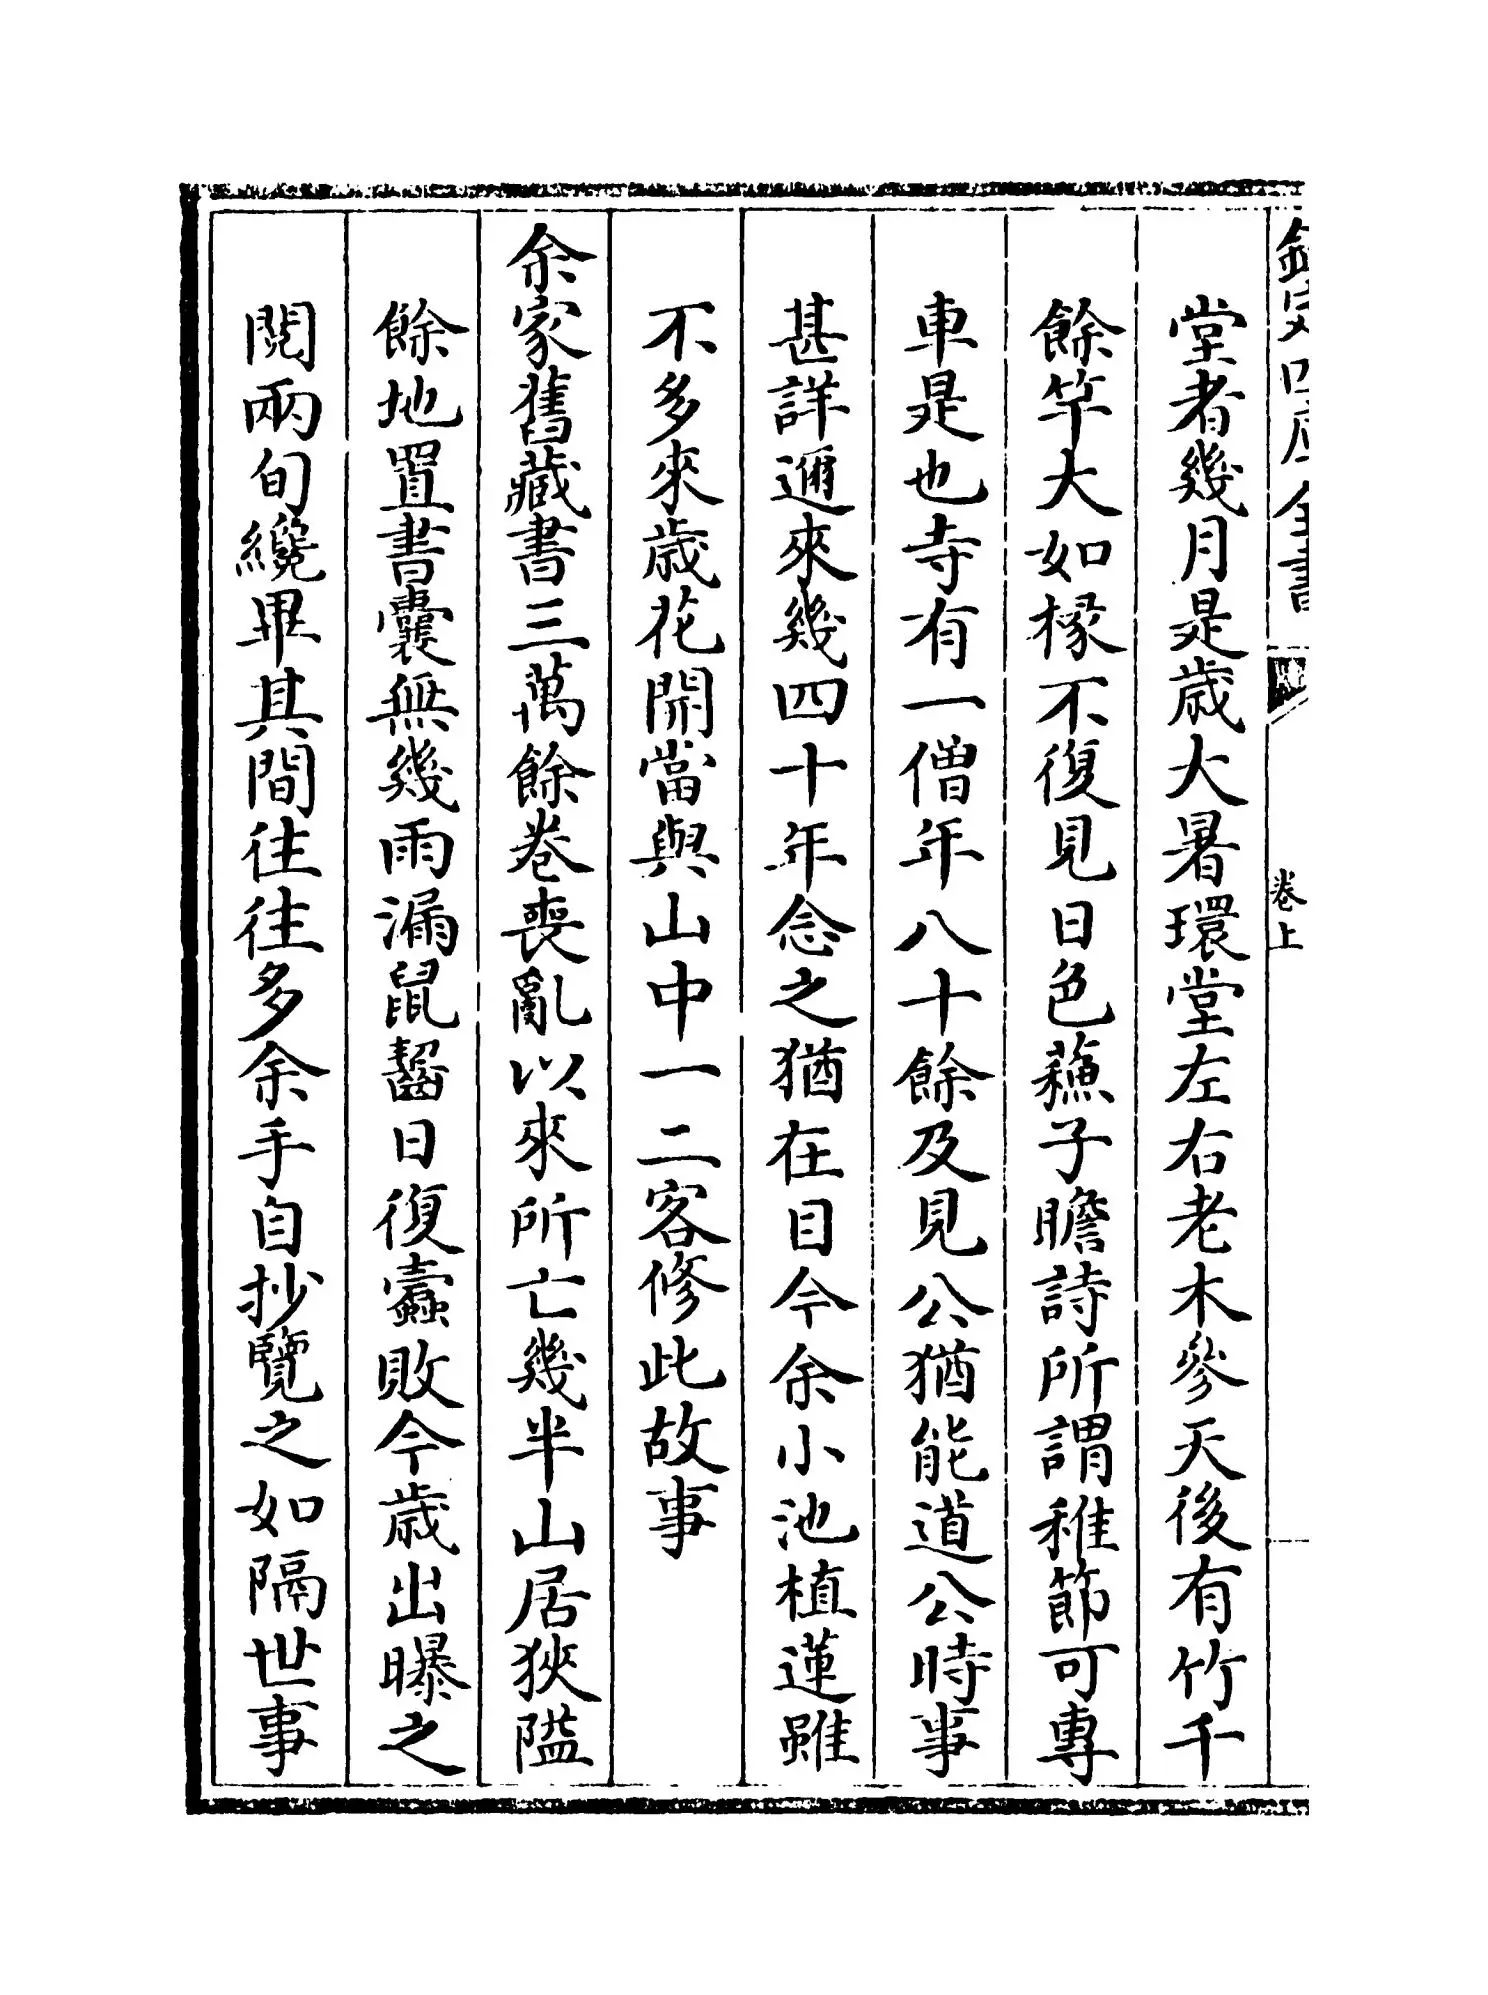 欽定四庫全書
卷上
堂者幾月是歲大暑環堂左右老木參天後有竹千
餘竿大如椽不復見日色蘓子瞻詩所謂稚節可專
車是也寺有一僧年八十餘及見公猶能道公時事
甚詳邇來幾四十年念之猶在目今余小池植蓮雖
不多來歲花開當與山中一二客修此故事
余家舊藏書三萬餘卷喪亂以來所亡幾半山居狹隘
餘地置書囊無幾雨漏鼠齧日復蠹敗今歲出曝之
閱兩旬纔畢其間往往多余手自抄覽之如隔世事